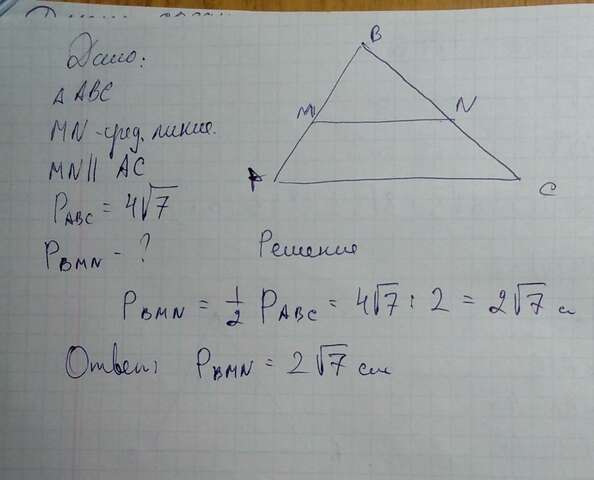 Дано:
Δ ABC
MN - сред. линия.
MN || AC
P_ABC = 4√7
P_BMN - ?
B
M
N
A
C
Решение
P_BMN = 1/2 P_ABC = 4√7 : 2 = 2√7 с
Ответ: P_BMN = 2√7 см